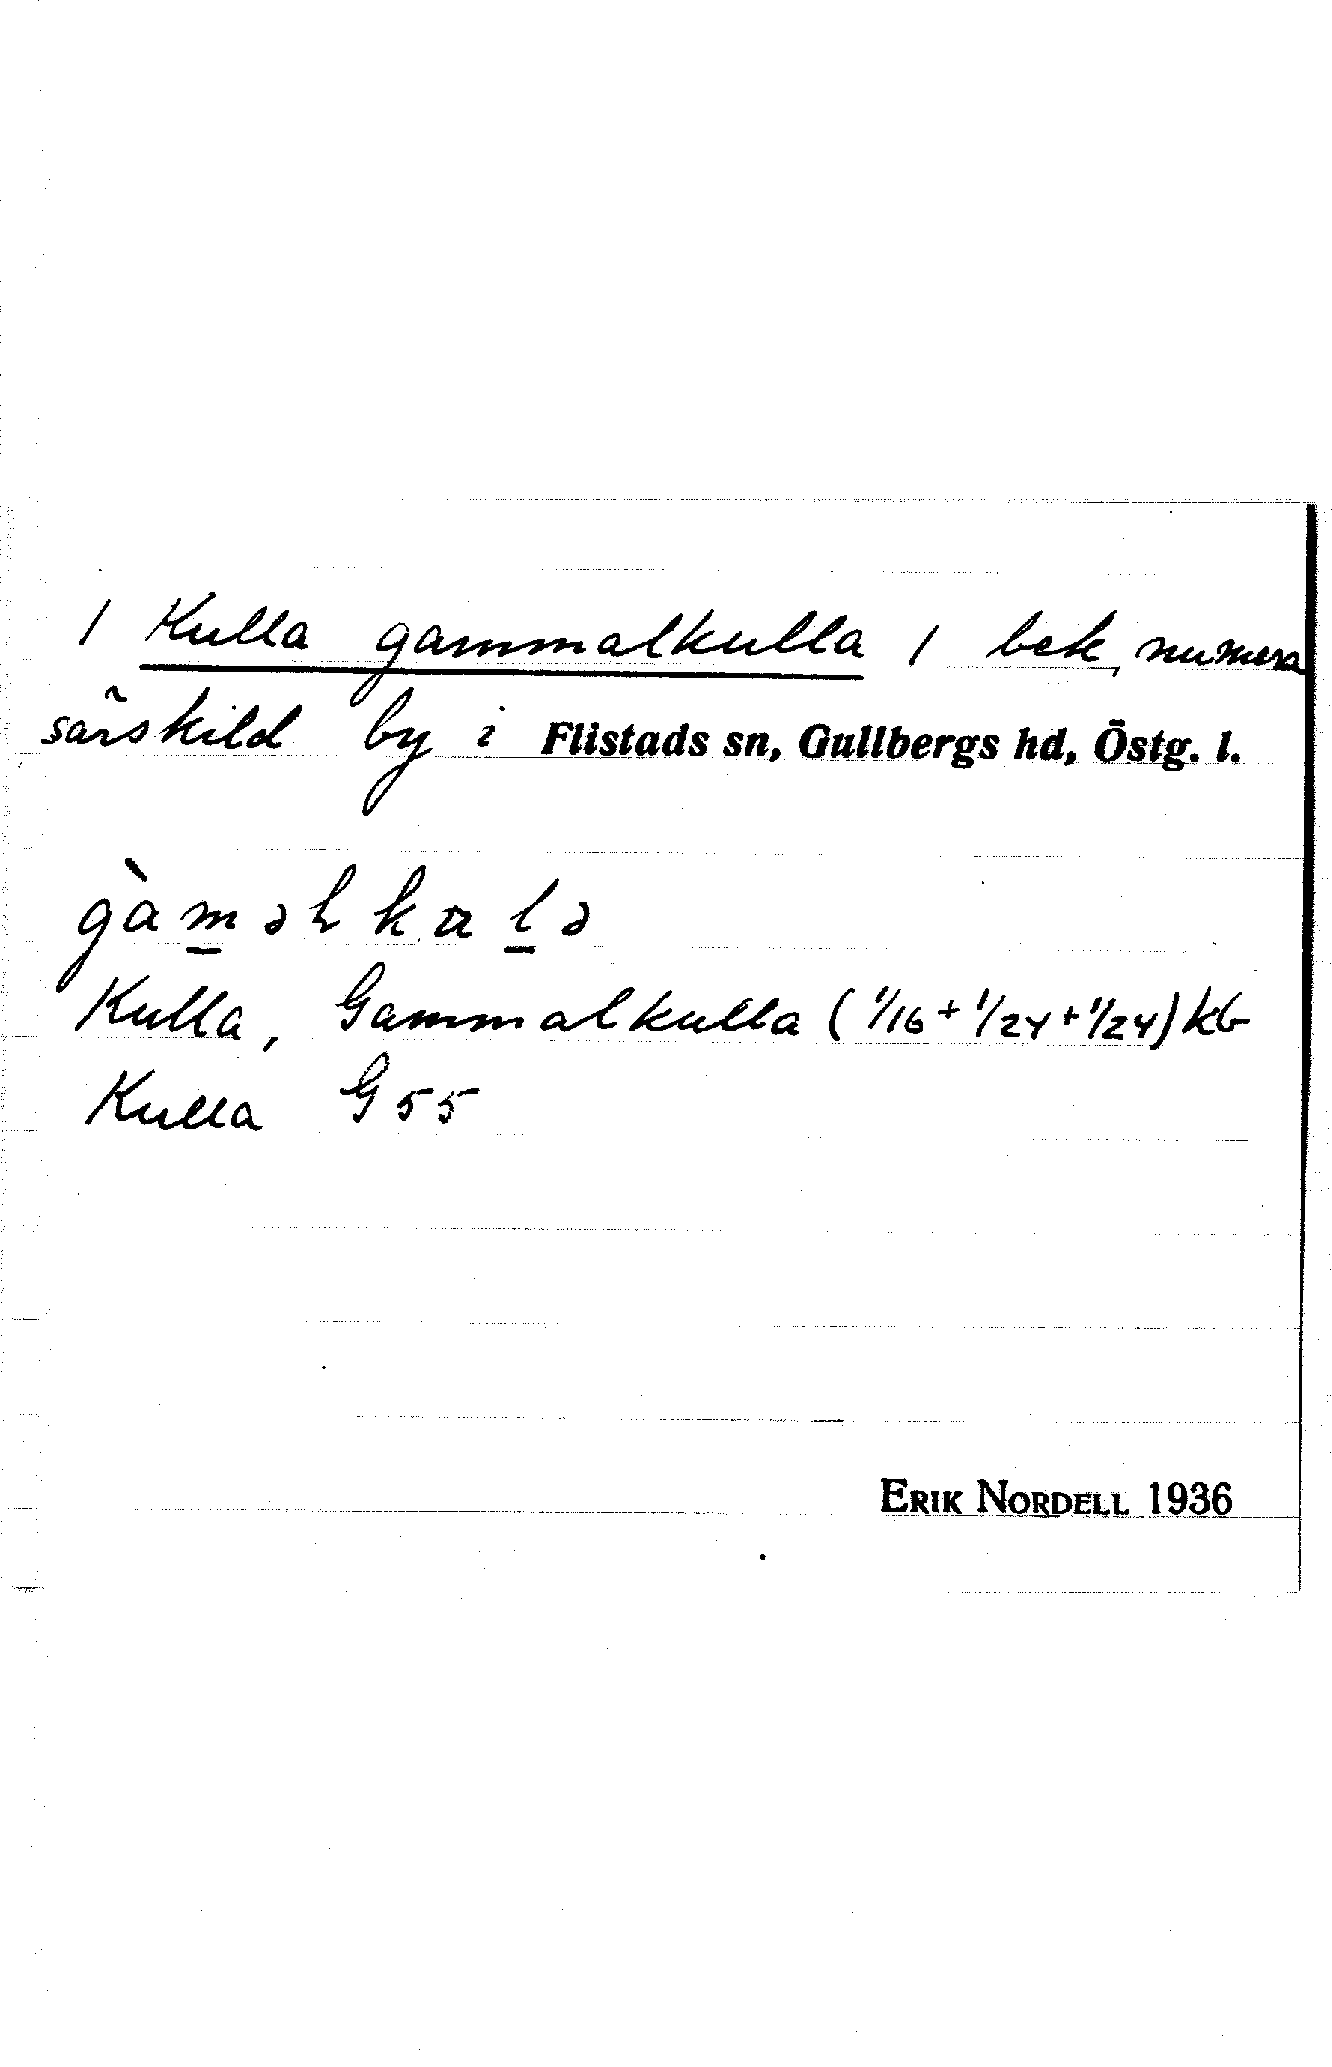 / Kulla gammalkulla / bek, numera
särskild by i Flistads sn, Gullbergs hd, Östg. l.
gàm̲əlkɑl̲ə
Kulla, Gammalkulla (1/16 + 1/24 + 1/24) kb
Kulla G 55
ERIK NORDELL 1936